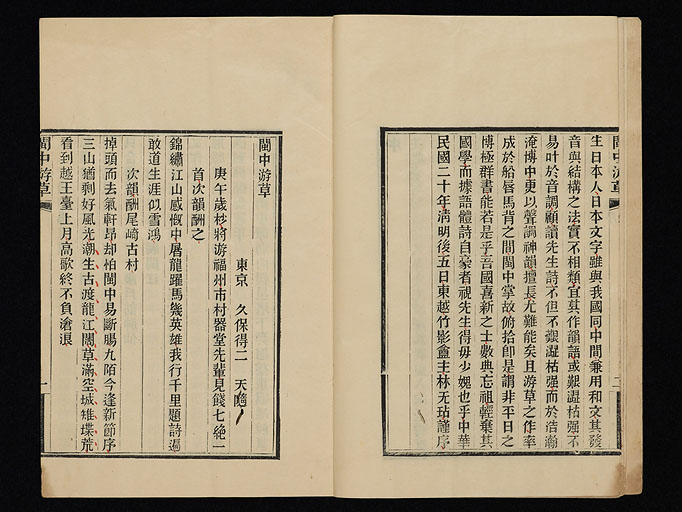 閩中游草
生日本人日本文字雖與我國同中間兼用和文其發
音與結構之法實不相類宜其作韻語或艱澀枯强不
易叶於音調顧讀先生詩不但不艱澀枯强而於浩瀚
淹博中更以聲調神韻擅長尤難能矣且游草之作率
成於船唇馬背之間閩中掌故俯拾卽是謂非平日之
博極群書能若是乎吾國喜新之士數典忘祖輕棄其
國學而摭語體詩自豪者視先生得毋少媿也乎中華
民國二十年淸明後五日東越竹影盦主林无玷謹序
二
閩中游草
東京 久保得二 天隨
庚午歲杪將游福州市村器堂先輩見餞七絶一
首次韻酬之
錦繡江山感慨中屠龍躍馬幾英雄我行千里題詩遍
敢道生涯似雪鴻
次韻酬尾崎古村
掉頭而去氣軒昂却怕閩中易斷腸九陌今逢新節序
三山猶剩好風光潮生古渡龍江闊草滿空城雉堞荒
看到越王臺上月高歌終不負滄浪
閩中游草
一